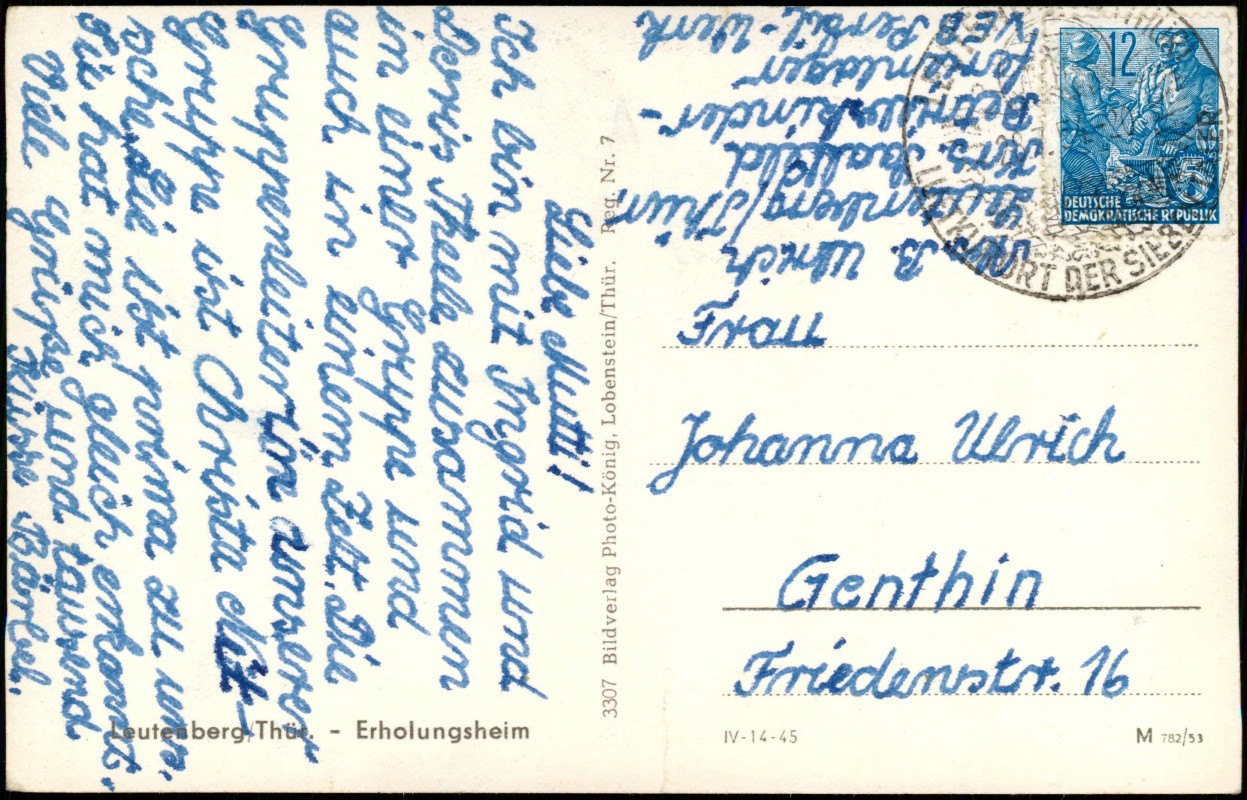 Liebe Mutti!
Ich bin mit Ingrid und
Doris Thiele zusammen
in einer Gruppe und
auch in einem Zelt. Die
Gruppenleiterin unserer
Gruppe ist Christa
scher. Sie ist prima zu uns.
Sie hat mich gleich erkannt.
Viele Grüße und tausend
Küsse Bärbel.
B. Ulrich
Leutenberg/Thür
Krs. Saalfeld
Betriebskinder-
ferienlager
VEB Persil-Werk
Frau
Johanna Ulrich
Genthin
Friedenstr. 16
3307 Bildverlag Photo-König, Lobenstein/Thür. Reg. Nr. 7
Leutenberg/Thür. - Erholungsheim
IV-14-45
M 782/53
12
DEUTSCHE
DEMOKRATISCHE REPUBLIK
LUFTKURORT DER SIEBEN TÄLER